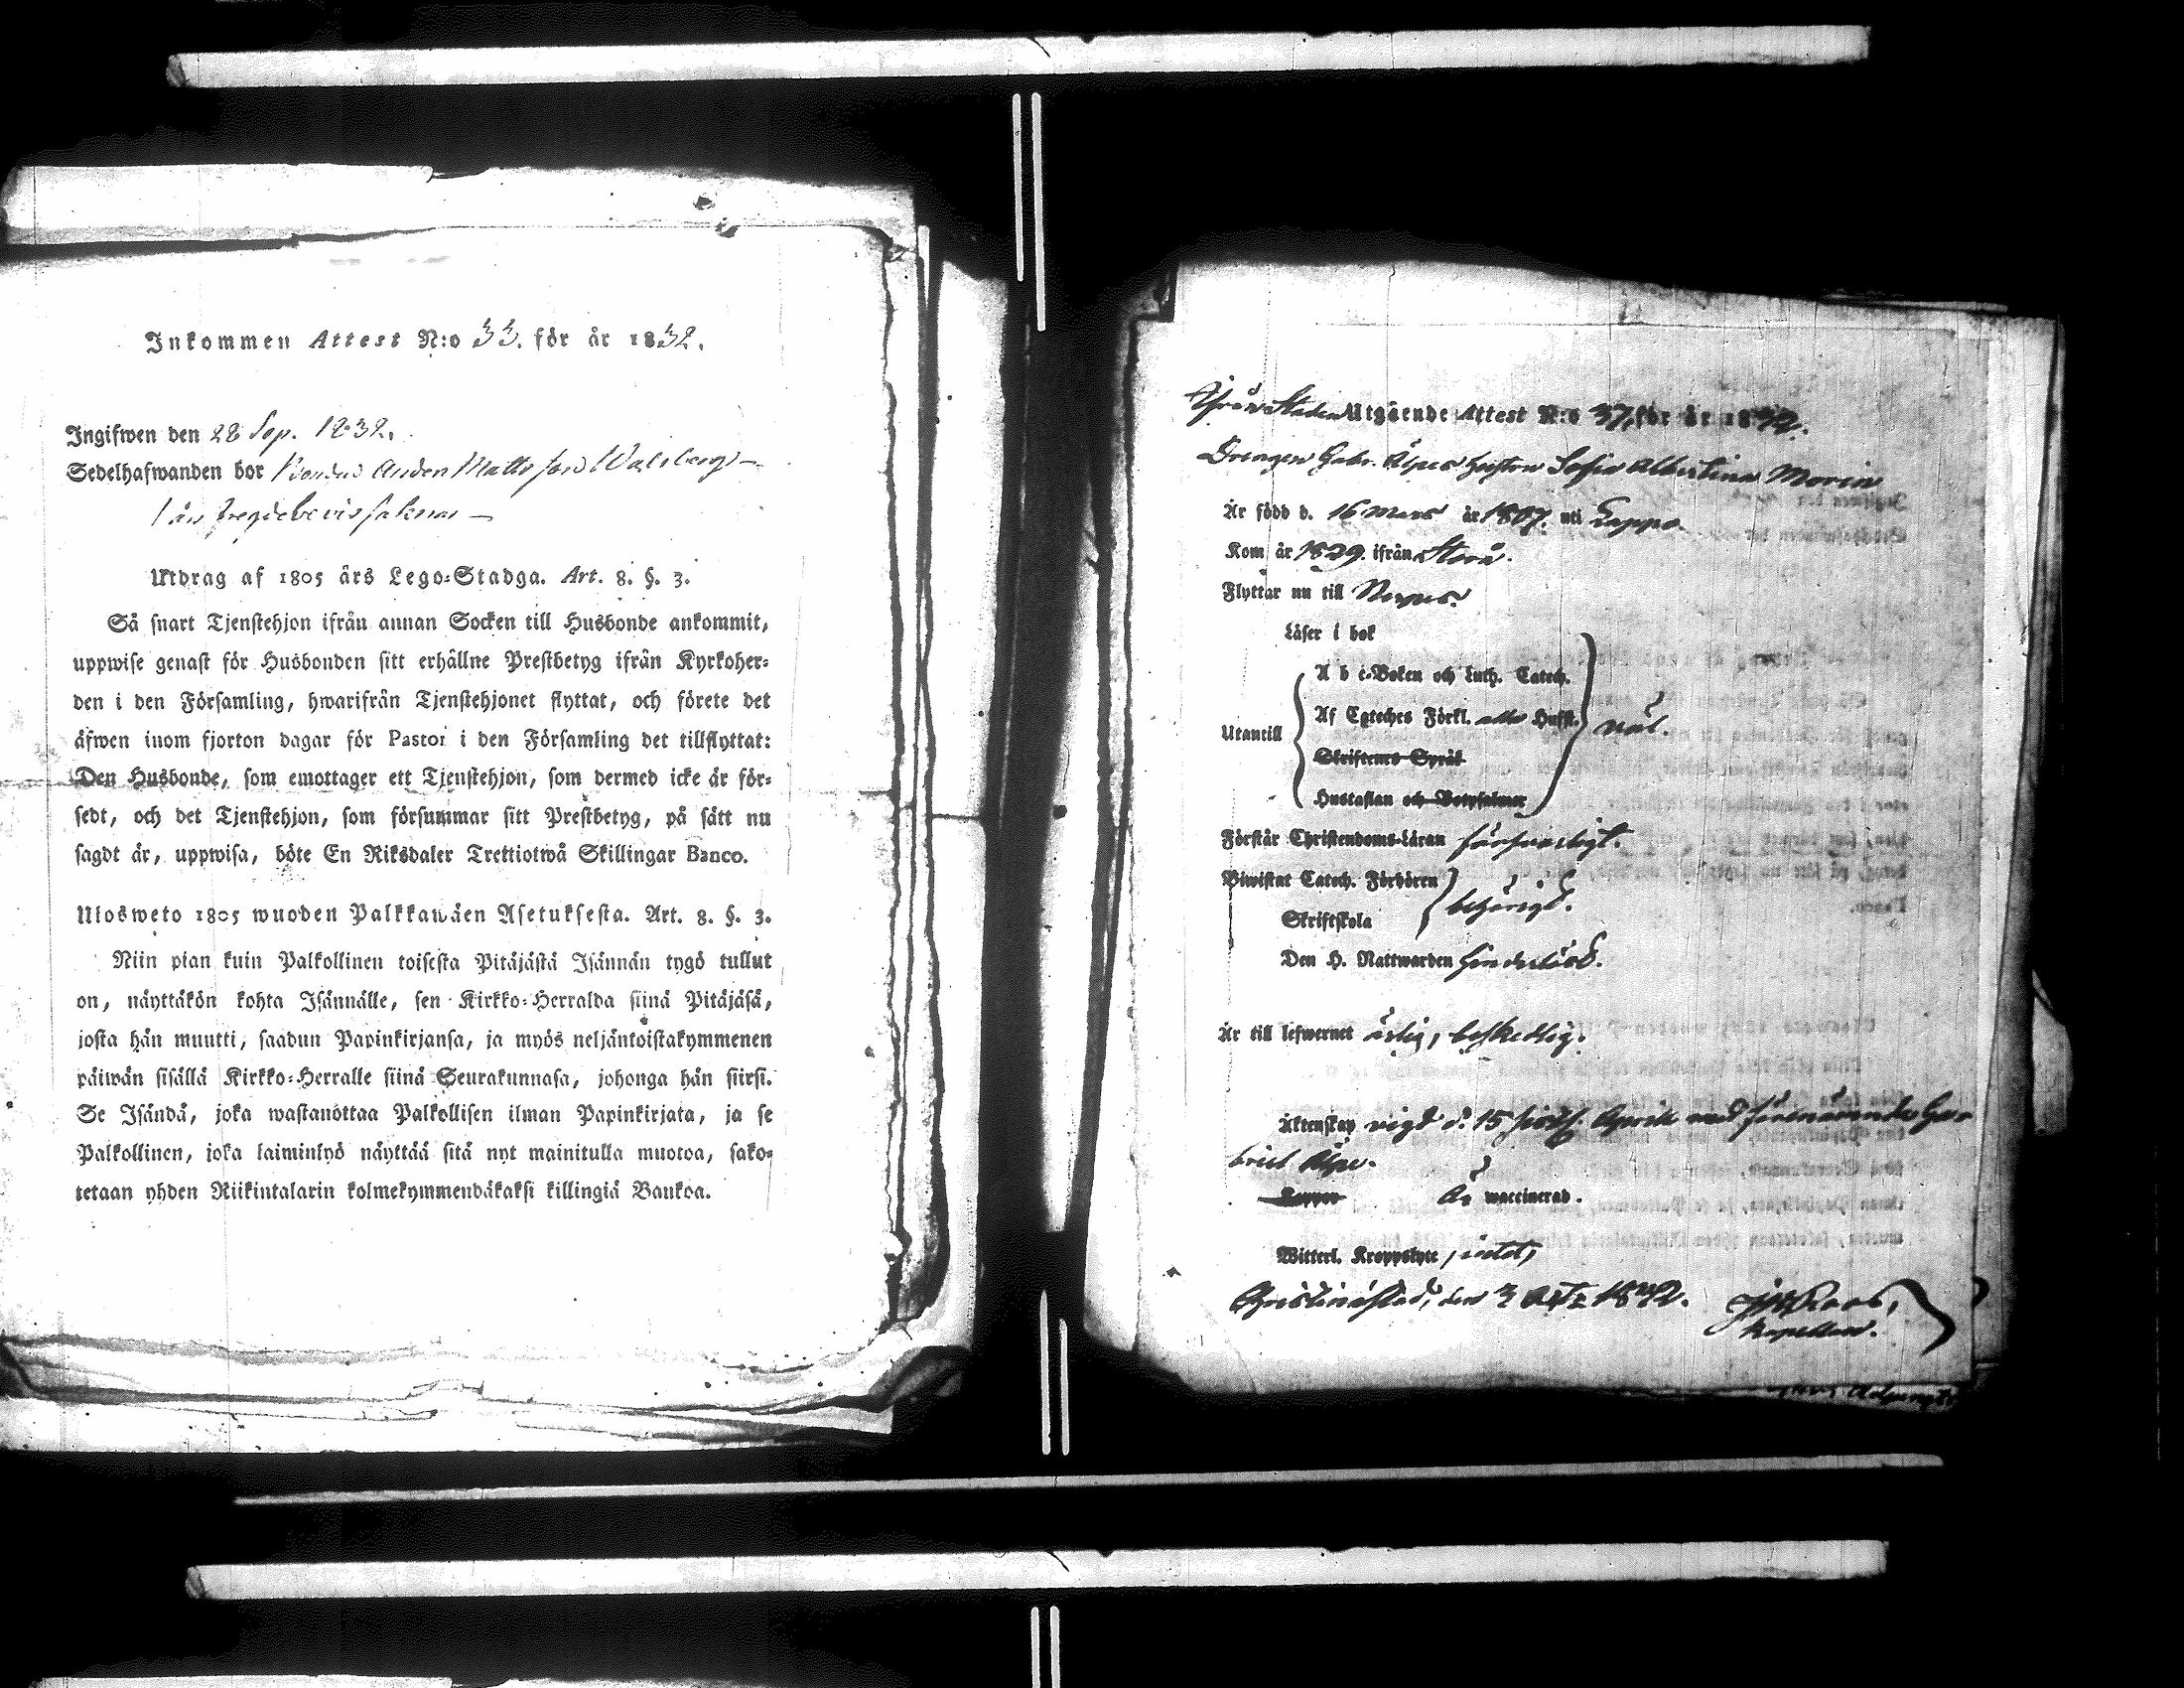 Inkommen Attest N:o 33. för år 1832.
Ingifwen den 28 Sep. 1832.
Sedelhafwanden bor Anders Mattsson
Utdrag af 1805 års Lego-Stadga. Art. 8. §. 3.
Så snart Tjenstehjon ifrån annan Socken till Husbonde ankommit,
uppwise genast för Husbonden sitt erhållne Prestbetyg ifrån Kyrkoher-
den i den Församling, hwarifrån Tjenstehjonet flyttat, och förete det
äfwen inom fjorton dagar för Pastor i den Församling det tillflyttat:
Den Husbonde, som emottager ett Tjenstehjon, som dermed icke är för-
sedt, och det Tjenstehjon, som försummar sitt Prestbetyg, på sätt nu
sagdt är, uppwisa, böte En Riksdaler Trettiotwå Skillingar Banco.
Ulosweto 1805 wuoden Palkkawäen Asetuksesta. Art. 8. §. 3.
Niin pian kuin Palkollinen toisesta Pitäjästä Isännän tygö tullut
on, näyttäkön kohta Isännälle, sen Kirkko-Herralda siinä Pitäjäsä,
josta hän muutti, saadun Papinkirjansa, ja myös neljäntoistakymmenen
päiwän sisällä Kirkko-Herralle siinä Seurakunnasa, johonga hän siirsi.
Se Isändä, joka wastanottaa Palkollisen ilman Papinkirjata, ja se
Palkollinen, joka laiminlyö näyttää sitä nyt mainitulla muotoa, sako-
tetaan yhden Riikintalarin kolmekymmendäkaksi killingiä Bankoa.
Ifrån Staden Utgående Attest N:o 37, för år 1832.
Drengen Gabr. Älpes hustru Sofia Albertina Morin
Är född d. 16 Mars år 1807. uti Lappo.
Kom år 1829. ifrån Storå.
Flyttar nu till Nerpes.
Läser i bok
A b c-Boken och Luth. Catech.
Af Cateches Förkl. Hufst.
Utantill
nöl.
Skriftenes Språk
Hustaflan och Botpsalmer
Förstår Christendoms-Läran försvarligt.
Biwistat Catech. Förhören
behörigt.
Skriftskola
Den H. Nattwarden
Är till lefwernet ärlig, beskedlig.
Äktenskap vigd d. 15 sistl. April med förenämnde Ga-
briel Älpe.
Koppor Är waccinerad.
Witterl. Kroppslyte, intet,
Christinestad, den 3 1832.
Kapellan.